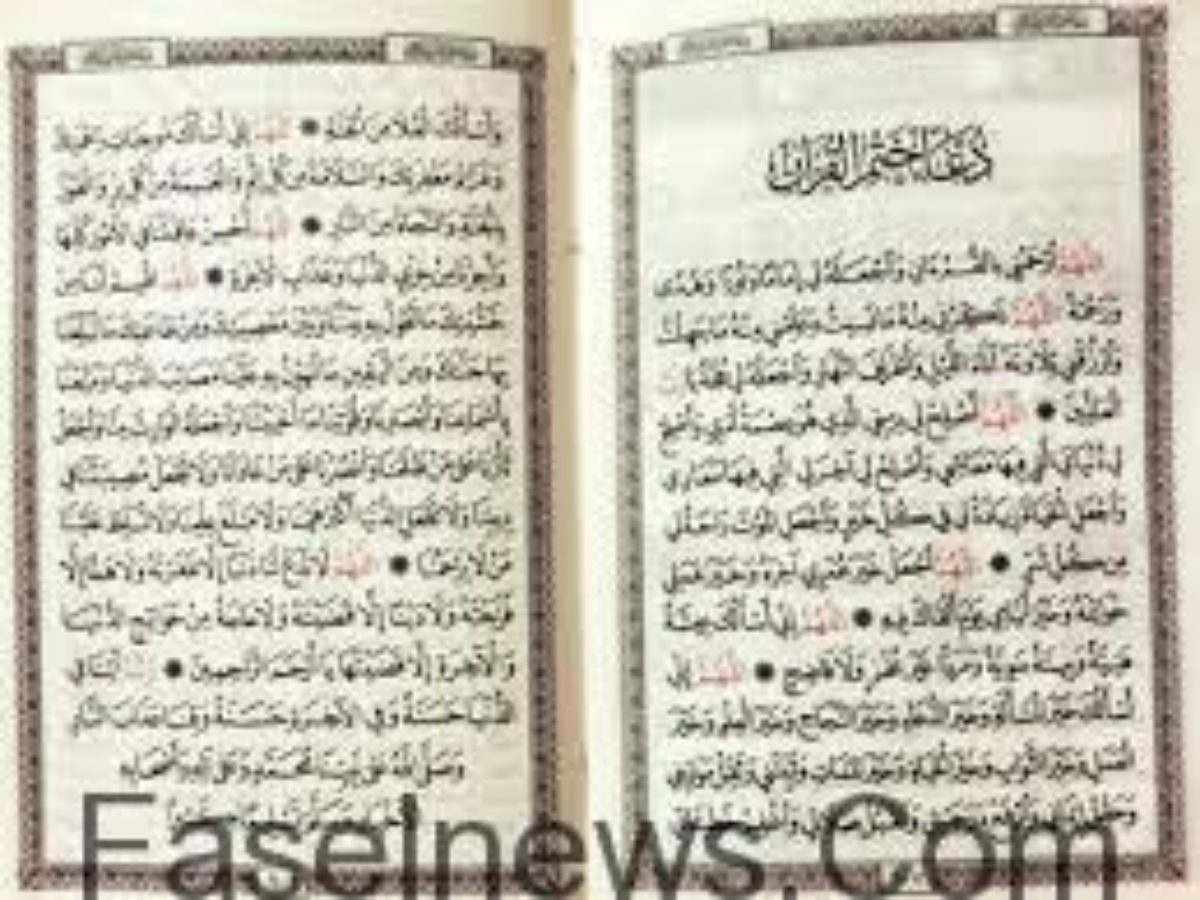 دُعَاءُ خَتْمِ الْقُرْآنِ
اللَّهُمَّ ارْحَمْنِي بِالْقُرْءَانِ وَاجْعَلْهُ لِي إِمَامًا وَنُورًا وَهُدًى
وَرَحْمَةً اللَّهُمَّ ذَكِّرْنِي مِنْهُ مَا نَسِيتُ وَعَلِّمْنِي مِنْهُ مَا جَهِلْتُ
وَارْزُقْنِي تِلَاوَتَهُ آنَاءَ اللَّيْلِ وَأَطْرَافَ النَّهَارِ وَاجْعَلْهُ لِي حُجَّةً يَا رَبَّ
الْعَالَمِينَ ● اللَّهُمَّ أَصْلِحْ لِي دِينِي الَّذِي هُوَ عِصْمَةُ أَمْرِي وَأَصْلِحْ
لِي دُنْيَايَ الَّتِي فِيهَا مَعَاشِي وَأَصْلِحْ لِي آخِرَتِي الَّتِي فِيهَا مَعَادِي
وَاجْعَلِ الْحَيَاةَ زِيَادَةً لِي فِي كُلِّ خَيْرٍ وَاجْعَلِ الْمَوْتَ رَاحَةً لِي
مِنْ كُلِّ شَرٍّ ● اللَّهُمَّ اجْعَلْ خَيْرَ عُمْرِي آخِرَهُ وَخَيْرَ عَمَلِي
خَوَاتِمَهُ وَخَيْرَ أَيَّامِي يَوْمَ أَلْقَاكَ فِيهِ ● اللَّهُمَّ إِنِّي أَسْأَلُكَ عِيشَةً
هَنِيَّةً وَمِيتَةً سَوِيَّةً وَمَرَدًّا غَيْرَ مُخْزٍ وَلَا فَاضِحٍ ● اللَّهُمَّ إِنِّي
أَسْأَلُكَ خَيْرَ الْمَسْأَلَةِ وَخَيْرَ الدُّعَاءِ وَخَيْرَ النَّجَاحِ وَخَيْرَ الْعِلْمِ وَخَيْرَ
الْعَمَلِ وَخَيْرَ الثَّوَابِ وَخَيْرَ الْحَيَاةِ وَخَيْرَ الْمَمَاتِ وَثَبِّتْنِي وَثَقِّلْ مَوَازِينِي
وَأَسْأَلُكَ الْعُلَا مِنَ الْجَنَّةِ ● اللَّهُمَّ إِنِّي أَسْأَلُكَ مُوجِبَاتِ رَحْمَتِكَ
وَعَزَائِمَ مَغْفِرَتِكَ وَالسَّلَامَةَ مِنْ كُلِّ إِثْمٍ وَالْغَنِيمَةَ مِنْ كُلِّ بِرٍّ وَالْفَوْزَ
بِالْجَنَّةِ وَالنَّجَاةَ مِنَ النَّارِ ● اللَّهُمَّ أَحْسِنْ عَاقِبَتَنَا فِي الْأُمُورِ كُلِّهَا
وَأَجِرْنَا مِنْ خِزْيِ الدُّنْيَا وَعَذَابِ الْآخِرَةِ ● اللَّهُمَّ اقْسِمْ لَنَا مِنْ
خَشْيَتِكَ مَا تَحُولُ بِهِ بَيْنَنَا وَبَيْنَ مَعْصِيَتِكَ وَمِنْ طَاعَتِكَ مَا تُبَلِّغُنَا
بِهَا جَنَّتَكَ وَمِنَ الْيَقِينِ مَا تُهَوِّنُ بِهِ عَلَيْنَا مَصَائِبَ الدُّنْيَا وَمَتِّعْنَا
بِأَسْمَاعِنَا وَأَبْصَارِنَا وَقُوَّتِنَا مَا أَحْيَيْتَنَا وَاجْعَلْهُ الْوَارِثَ مِنَّا وَاجْعَلْ
ثَأْرَنَا عَلَى مَنْ ظَلَمَنَا وَانْصُرْنَا عَلَى مَنْ عَادَانَا وَلَا تَجْعَلْ مُصِيبَتَنَا فِي
دِينِنَا وَلَا تَجْعَلِ الدُّنْيَا أَكْبَرَ هَمِّنَا وَلَا مَبْلَغَ عِلْمِنَا وَلَا تُسَلِّطْ عَلَيْنَا
مَنْ لَا يَرْحَمُنَا ● اللَّهُمَّ لَا تَدَعْ لَنَا ذَنْبًا إِلَّا غَفَرْتَهُ وَلَا هَمًّا إِلَّا
فَرَّجْتَهُ وَلَا دَيْنًا إِلَّا قَضَيْتَهُ وَلَا حَاجَةً مِنْ حَوَائِجِ الدُّنْيَا
وَالْآخِرَةِ إِلَّا قَضَيْتَهَا يَا أَرْحَمَ الرَّاحِمِينَ ● رَبَّنَا آتِنَا فِي
الدُّنْيَا حَسَنَةً وَفِي الْآخِرَةِ حَسَنَةً وَقِنَا عَذَابَ النَّارِ
وَصَلَّى اللَّهُ عَلَى نَبِيِّنَا مُحَمَّدٍ وَعَلَى آلِهِ وَأَصْحَابِهِ
Faselnews.Com